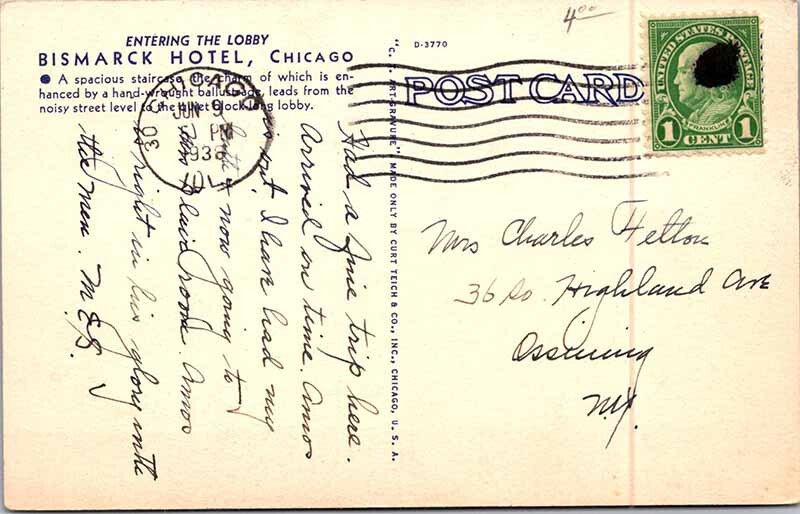 4.00
ENTERING THE LOBBY
BISMARCK HOTEL, CHICAGO
● A spacious staircase, the charm of which is en-
hanced by a hand-wrought ballustrade, leads from the
noisy street level to the quiet block-long lobby.
D-3770
POST CARD
UNITED STATES POSTAGE
FRANKLIN
1 CENT 1
CHICAGO
JUN 9
PM
1938
30
ILL
"C. T. ART-GRAVURE" MADE ONLY BY CURT TEICH & CO., INC., CHICAGO, U. S. A.
Had a fine trip here.
Arrived on time. Amos
met. I have had my
bath & now going to
Blair room. Amos
is right in his glory with
the men. M.E.G.
Mrs Charles Felton
36 So. Highland Ave
Ossining
N.Y.